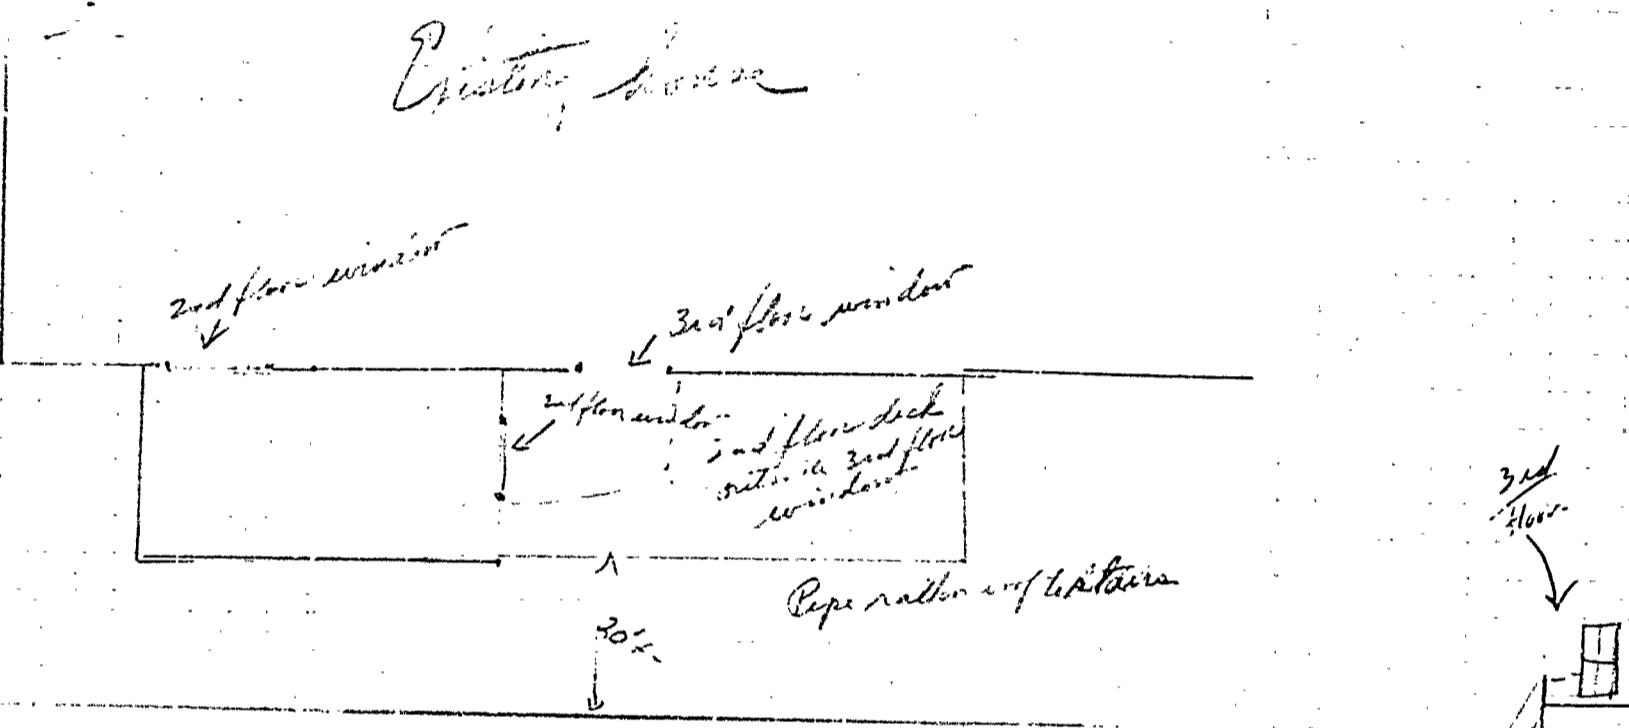 Existing house
2nd floor window
3rd floor window
2nd floor window
floor deck
outside 3rd floor
window
Pipe
stairs
3rd
floor